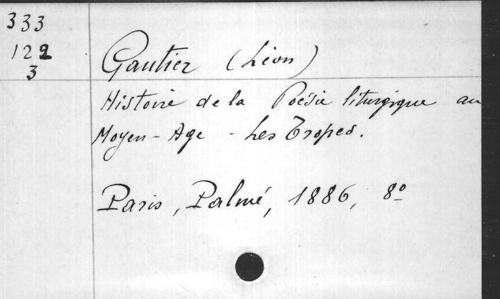 333
122
3
Gautier (Léon)
Histoire de la Poésie liturgique au
Moyen-Age - Les Tropes.
Paris, Palmé, 1886, 8º